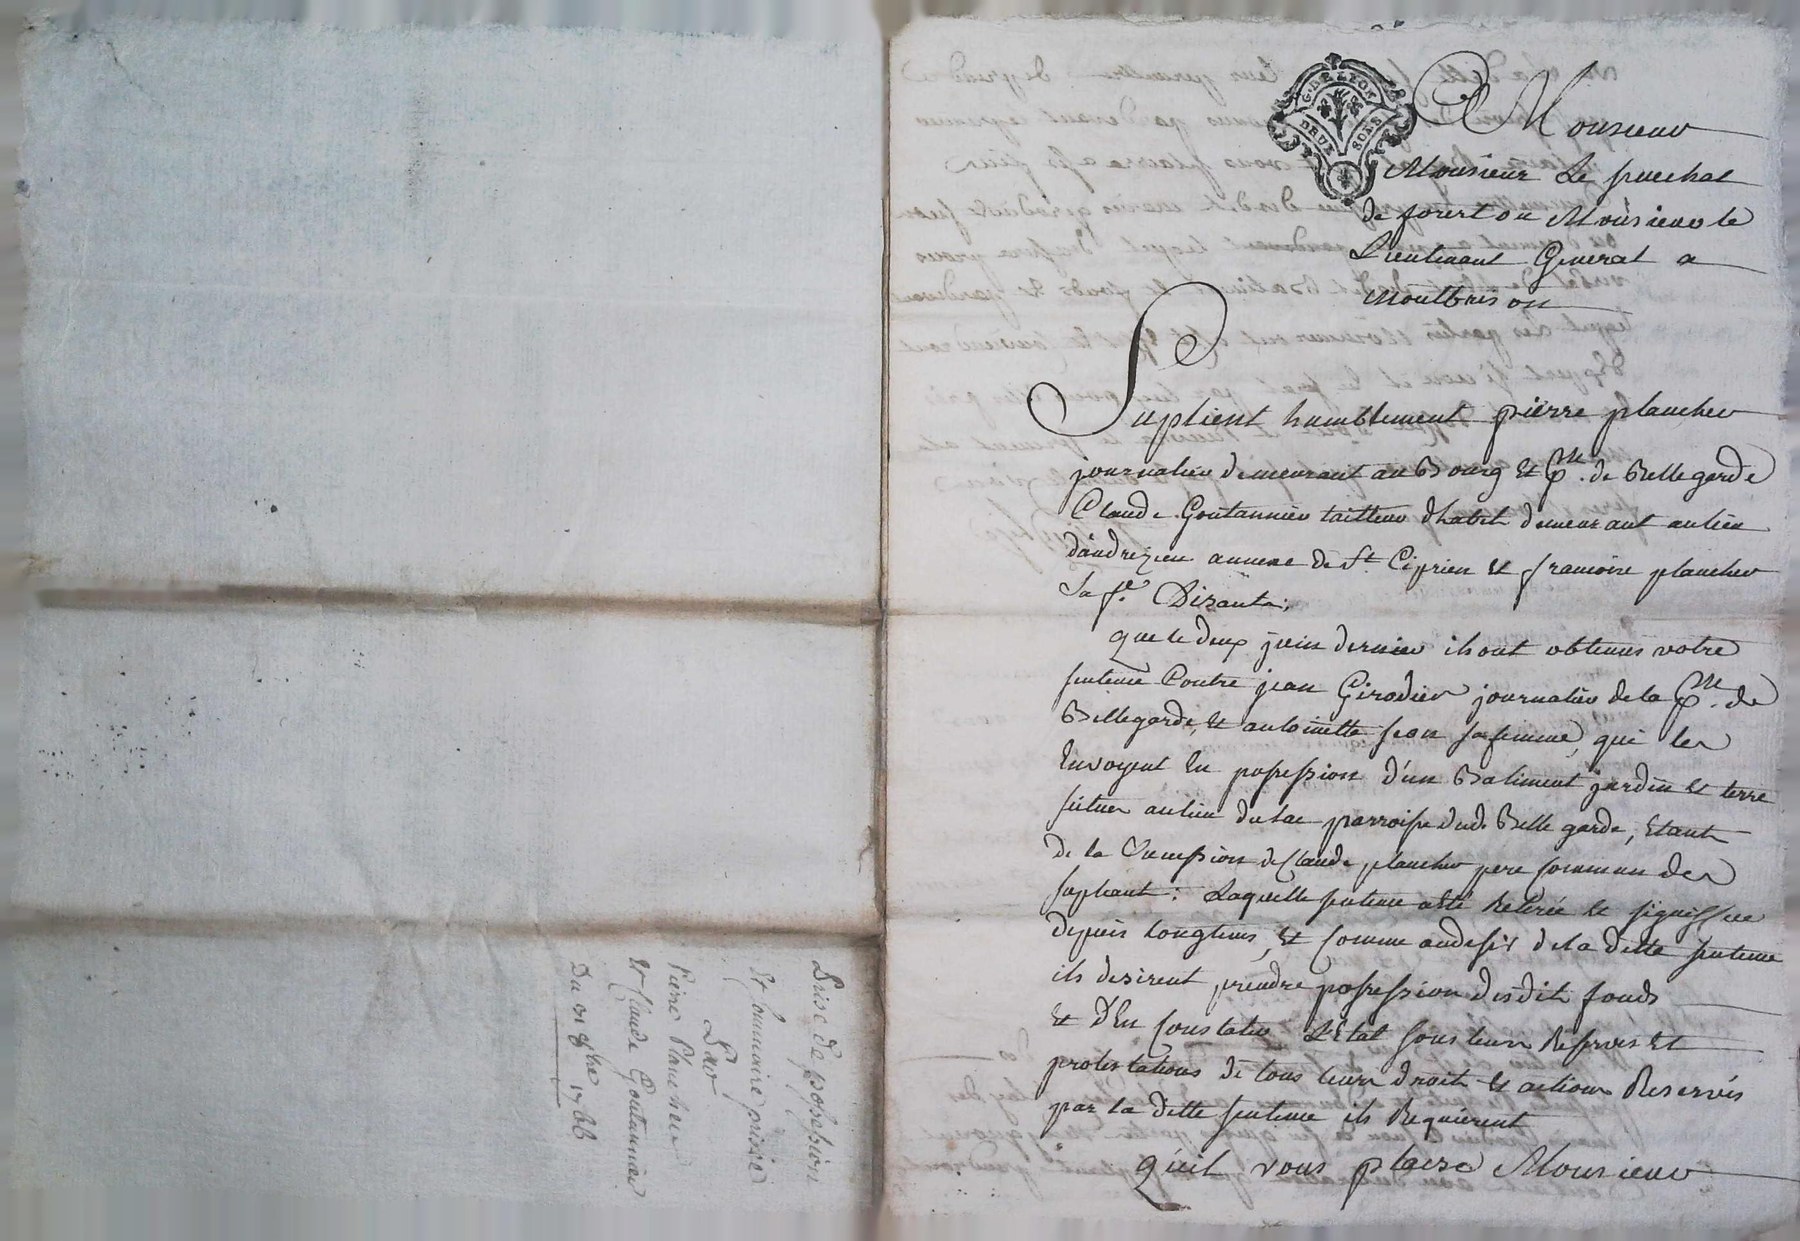 G. DE LYON
DEUX SOLS
A Monsieur
Monsieur Le
de forest ou Monsieur le
Lieutenant General a
Montbrison
Suplient humblement pierre plancher
journalier demeurant au Bourg et psse. de Bellegarde
Claude Goutannier tailleur dhabit demeurant au lieu
dandrezieu annexe de St. Ciprien et francoise plancher
Sa fe. Disants;
que le deux juin dernier ils ont obtenus votre
sentence Contre jean Girodier journalier de la psse. de
Bellegarde, et antoinette sa femme, qui les
Envoyent En possession d'un Batiment jardin et terre
situés au lieu du lac parroisse dud. Bellegarde, Etant
de la Sucession de Claude plancher pere commun des
supliant: Laquelle sentence a Eté Retirée et signiffiée
depuis longtems, et comme au desir de la dette sentence
ils desirent prendre possession desdits fonds
et d'En Constater L'Etat sous leurs Reserves et
protestations de tous leurs droits et actions Reservés
par la dette sentence ils Requierent
Qu'il vous plaise Monsieur
Prise de possession
Et Sommaire prisée
Pour
Pierre Plancher
Et Claude Goutannier
Du 21 8bre 1766